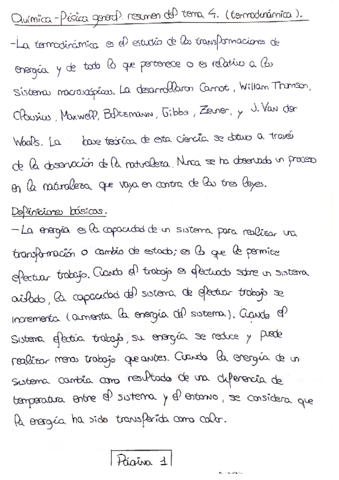 Química-Física general resumen del tema 4. (termodinámica).
-La termodinámica es el estudio de las transformaciones de
energía y de todo lo que pertenece o es relativo a los
sistemas macroscópicos. La desarrollaron Carnot, William Thomson,
Clausius, Maxwell, Boltzmann, Gibbs, Zeuner, y J. Van der
Waals. La base teórica de esta ciencia se obtuvo a través
de la observación de la naturaleza. Nunca se ha observado un proceso
en la naturaleza que vaya en contra de las tres leyes.
Definiciones básicas.
-La energía es la capacidad de un sistema para realizar una
transformación o cambio de estado; es lo que le permite
efectuar trabajo. Cuando el trabajo es efectuado sobre un sistema
aislado, la capacidad del sistema de efectuar trabajo se
incrementa (aumenta la energía del sistema). Cuando el
sistema efectúa trabajo, su energía se reduce y puede
realizar menos trabajo que antes. Cuando la energía de un
sistema cambia como resultado de una diferencia de
temperatura entre el sistema y el entorno, se considera que
la energía ha sido transferida como calor.
Página 1